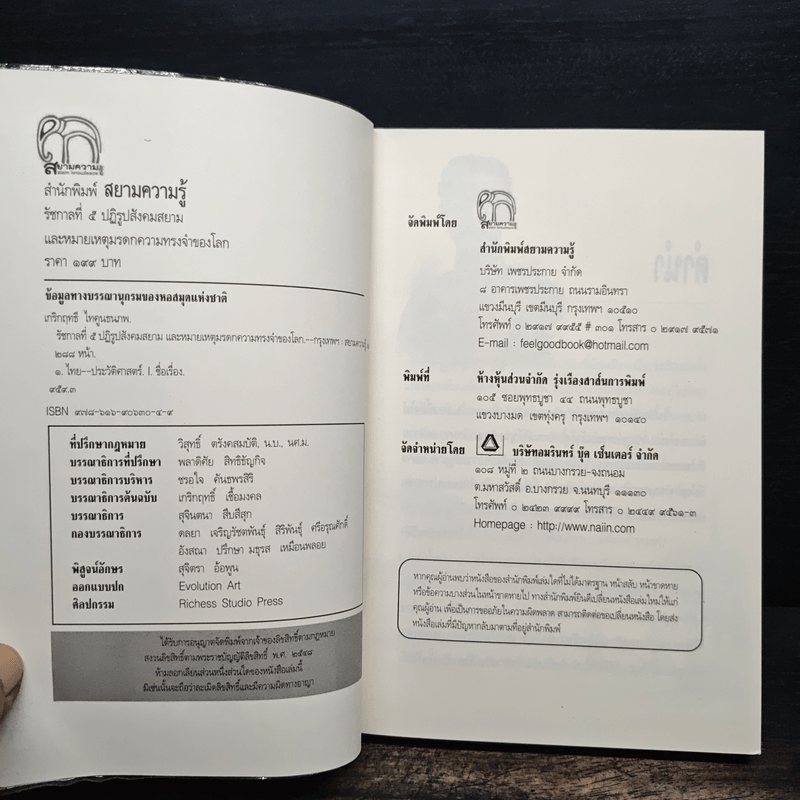 สยามความรู้
สำนักพิมพ์ สยามความรู้
รัชกาลที่ ๕ ปฏิรูปสังคมสยาม
และหมายเหตุมรดกความทรงจำของโลก
ราคา ๑๙๙ บาท
ข้อมูลทางบรรณานุกรมของหอสมุดแห่งชาติ
เกริกฤทธิ์ ไทคูนธนภพ.
รัชกาลที่ ๕ ปฏิรูปสังคมสยาม และหมายเหตุมรดกความทรงจำของโลก.--กรุงเทพฯ : สยามความรู้
๒๘๘ หน้า.
๑. ไทย--ประวัติศาสตร์. I. ชื่อเรื่อง.
๙๕๙.๓
ISBN ๙๗๘-๖๑๖-๙๐๖๓๐-๔-๙
ที่ปรึกษากฎหมาย วิสุทธิ์ ตรังคสมบัติ, น.บ., นศ.ม.
บรรณาธิการที่ปรึกษา พลาดิศัย สิทธิธัญกิจ
บรรณาธิการบริหาร ชรอใจ คันธพรสิริ
บรรณาธิการต้นฉบับ เกริกฤทธิ์ เชื้อมงคล
บรรณาธิการ สุจินตนา สืบสีสุก
กองบรรณาธิการ ดลยา เจริญรัชตพันธุ์ สิริพันธุ์ ศรีอรุณศักดิ์
อังสณา ปรึกษา มธุรส เหมือนพลอย
พิสูจน์อักษร สุจิตรา อ้อพูน
ออกแบบปก Evolution Art
ศิลปกรรม Richess Studio Press
ได้รับการอนุญาตจัดพิมพ์จากเจ้าของลิขสิทธิ์ตามกฎหมาย
สงวนลิขสิทธิ์ตามพระราชบัญญัติลิขสิทธิ์ พ.ศ. ๒๕๔๘
ห้ามลอกเลียนส่วนหนึ่งส่วนใดของหนังสือเล่มนี้
มิเช่นนั้นจะถือว่าละเมิดลิขสิทธิ์และมีความผิดทางอาญา
สยามความรู้
จัดพิมพ์โดย
สำนักพิมพ์สยามความรู้
บริษัท เพชรประกาย จำกัด
๘ อาคารเพชรประกาย ถนนรามอินทรา
แขวงมีนบุรี เขตมีนบุรี กรุงเทพฯ ๑๐๕๑๐
โทรศัพท์ ๐ ๒๙๑๗ ๙๙๕๕ # ๓๐๑ โทรสาร ๐ ๒๙๑๗ ๙๕๗๑
E-mail : feelgoodbook@hotmail.com
พิมพ์ที่ ห้างหุ้นส่วนจำกัด รุ่งเรืองสาส์นการพิมพ์
๑๐๕ ซอยพุทธบูชา ๔๔ ถนนพุทธบูชา
แขวงบางมด เขตทุ่งครุ กรุงเทพฯ ๑๐๑๔๐
จัดจำหน่ายโดย บริษัทอมรินทร์ บุ๊ค เซ็นเตอร์ จำกัด
๑๐๘ หมู่ที่ ๒ ถนนบางกรวย-จงถนอม
ต.มหาสวัสดิ์ อ.บางกรวย จ.นนทบุรี ๑๑๑๓๐
โทรศัพท์ ๐ ๒๔๒๓ ๙๙๙๙ โทรสาร ๐ ๒๔๔๙ ๙๕๖๑-๓
Homepage : http://www.naiin.com
หากคุณผู้อ่านพบว่าหนังสือของสำนักพิมพ์เล่มใดที่ไม่ได้มาตรฐาน หน้าสลับ หน้าขาดหาย
หรือข้อความบางส่วนในหน้าขาดหายไป ทางสำนักพิมพ์ยินดีเปลี่ยนหนังสือเล่มใหม่ให้แก่
คุณผู้อ่าน เพื่อเป็นการขออภัยในความผิดพลาด สามารถติดต่อขอเปลี่ยนหนังสือ โดยส่ง
หนังสือเล่มที่มีปัญหากลับมาตามที่อยู่สำนักพิมพ์